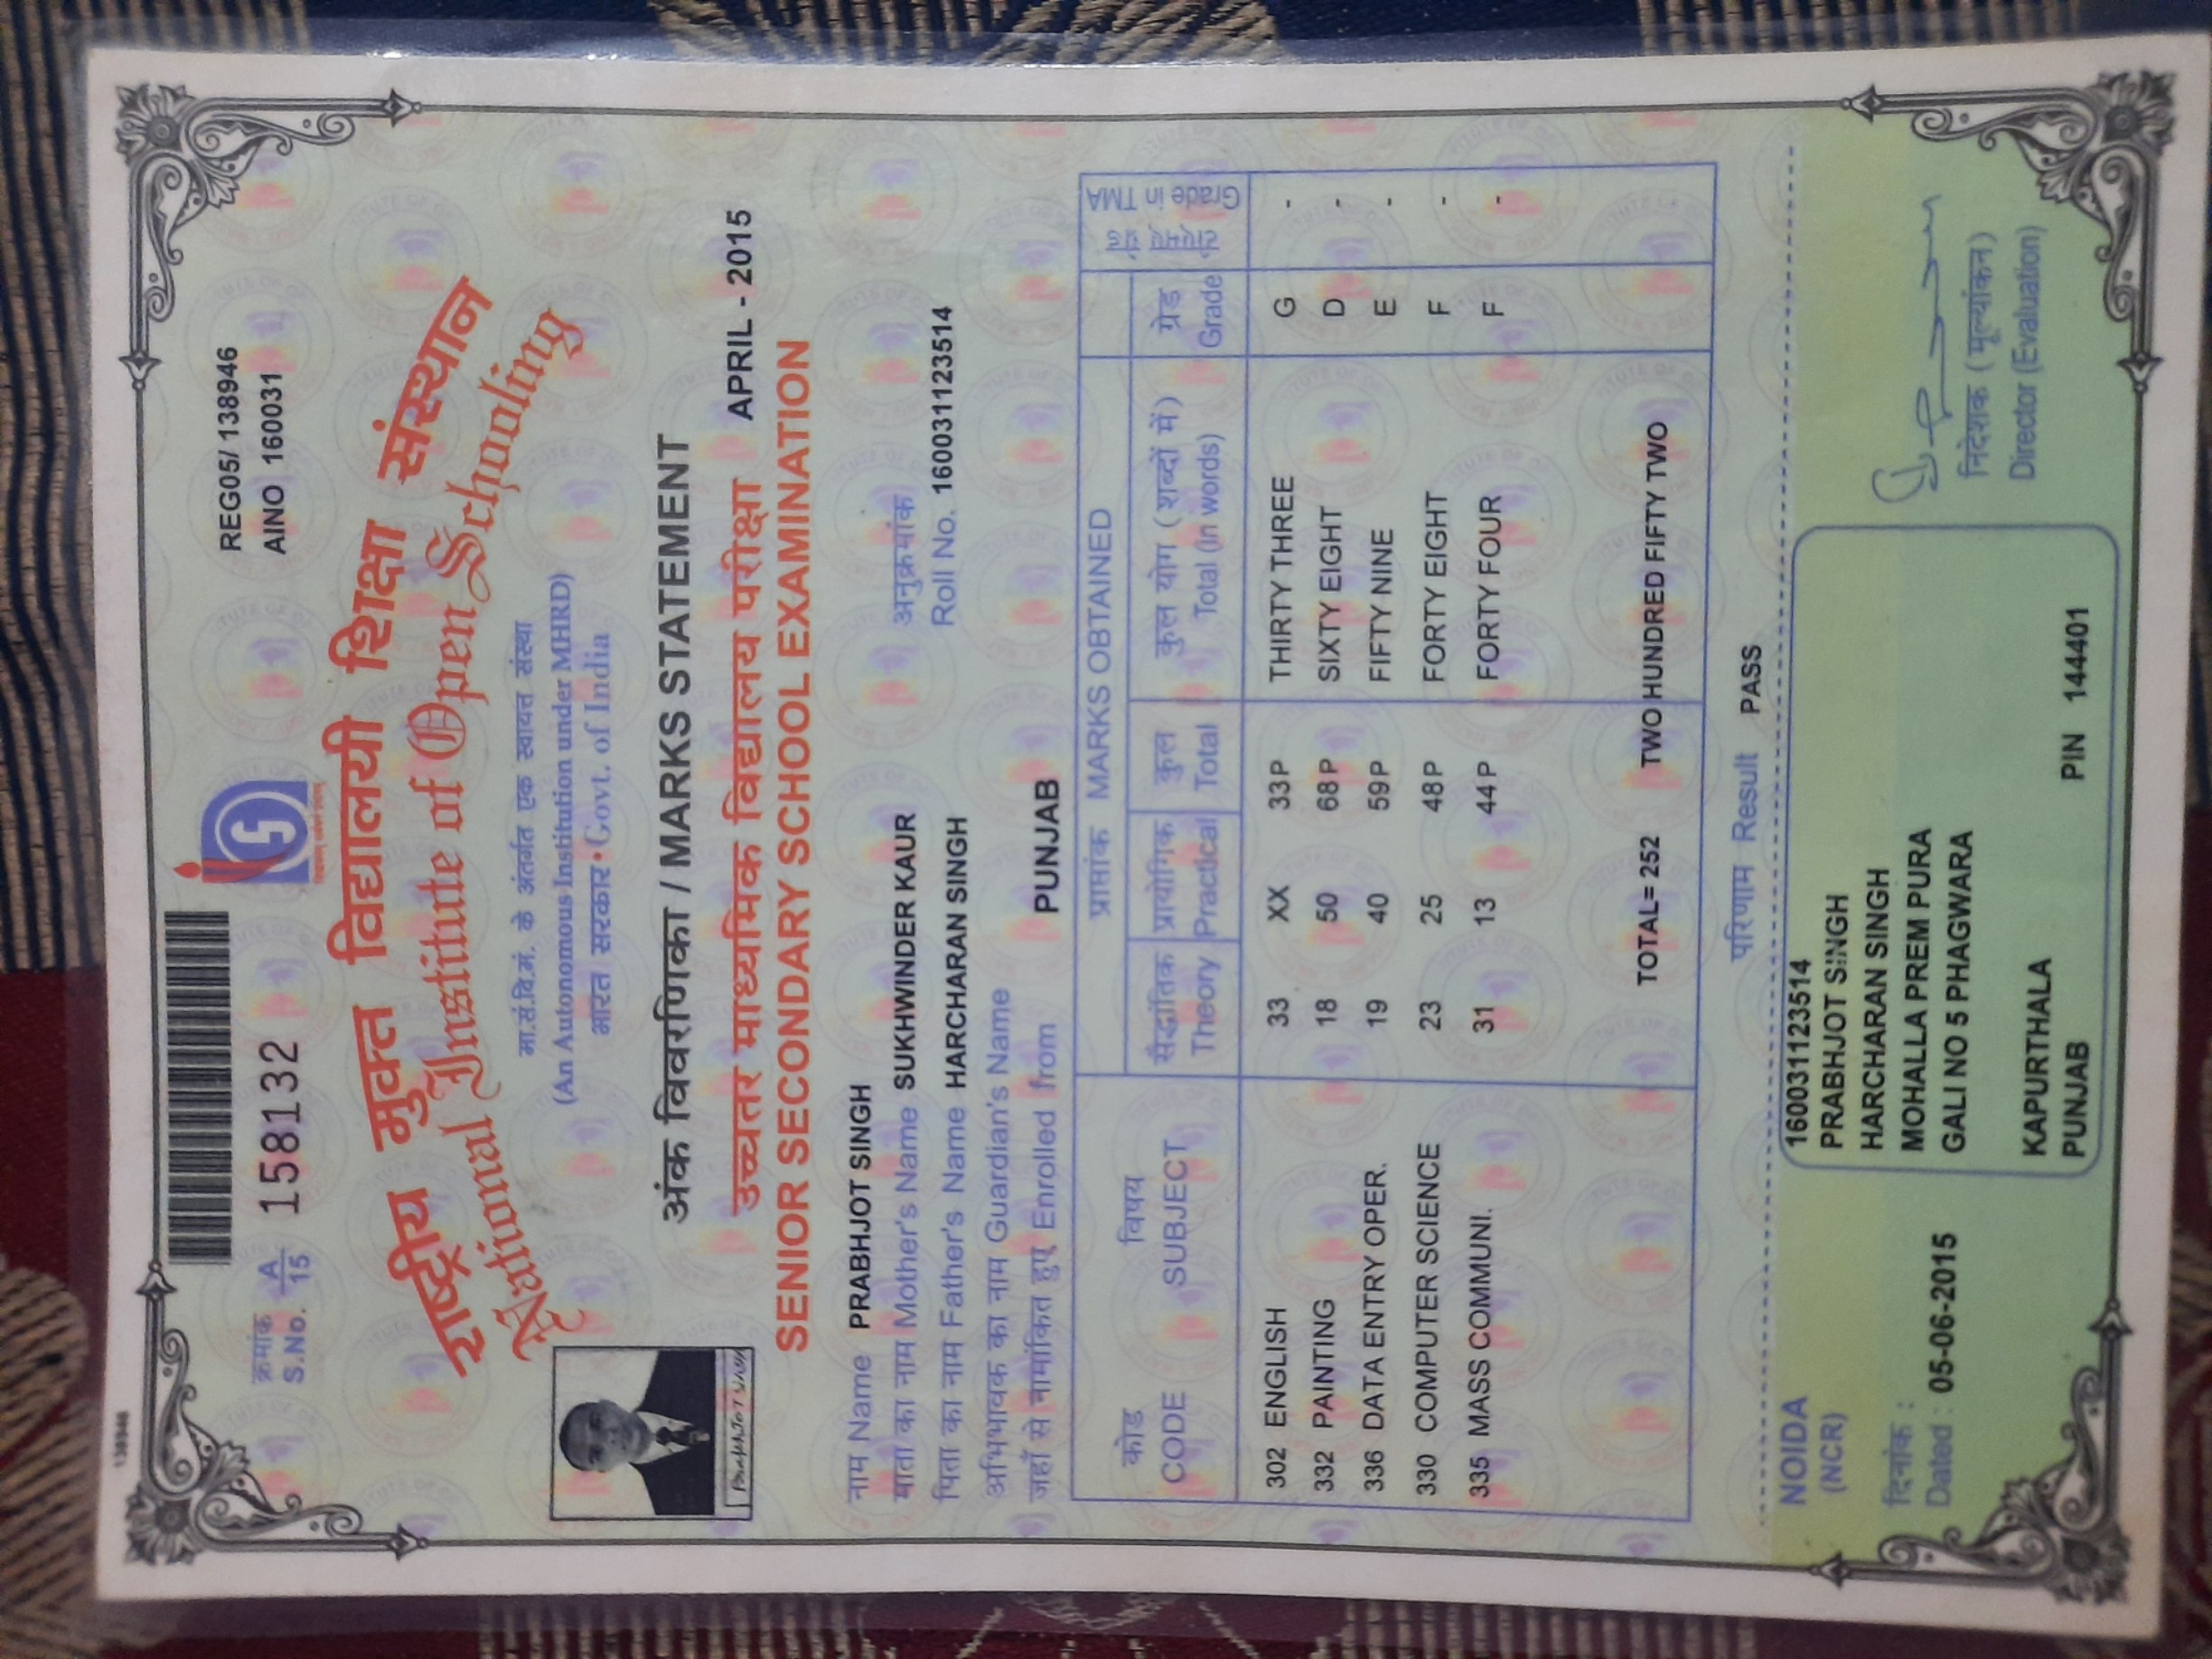 138946
क्रमांक
S.No. A/15 158132
REG05/ 138946
AINO 160031
राष्ट्रीय मुक्त विद्यालयी शिक्षा संस्थान
National Institute of Open Schooling
मा.सं.वि.मं. के अंतर्गत एक स्वायत्त संस्था
(An Autonomous Institution under MHRD)
भारत सरकार • Govt. of India
अंक विवरणिका / MARKS STATEMENT
उच्चतर माध्यमिक विद्यालय परीक्षा APRIL - 2015
SENIOR SECONDARY SCHOOL EXAMINATION
PRABHJOT SINGH
नाम Name PRABHJOT SINGH
माता का नाम Mother's Name SUKHWINDER KAUR अनुक्रमांक
पिता का नाम Father's Name HARCHARAN SINGH Roll No. 160031123514
अभिभावक का नाम Guardian's Name
जहाँ से नामांकित हुए Enrolled from PUNJAB
प्राप्तांक MARKS OBTAINED
कोड विषय सैद्धांतिक प्रायोगिक कुल कुल योग (शब्दों में) ग्रेड टीएमए ग्रेड
CODE SUBJECT Theory Practical Total Total (In words) Grade Grade in TMA
302 ENGLISH 33 XX 33P THIRTY THREE G -
332 PAINTING 18 50 68P SIXTY EIGHT D -
336 DATA ENTRY OPER. 19 40 59P FIFTY NINE E -
330 COMPUTER SCIENCE 23 25 48P FORTY EIGHT F -
335 MASS COMMUNI. 31 13 44P FORTY FOUR F -
TOTAL= 252 TWO HUNDRED FIFTY TWO
परिणाम Result PASS
NOIDA
(NCR)
दिनांक :
Dated : 05-06-2015
160031123514
PRABHJOT SINGH
HARCHARAN SINGH
MOHALLA PREM PURA
GALI NO 5 PHAGWARA
KAPURTHALA
PUNJAB PIN 144401
निदेशक (मूल्यांकन)
Director (Evaluation)